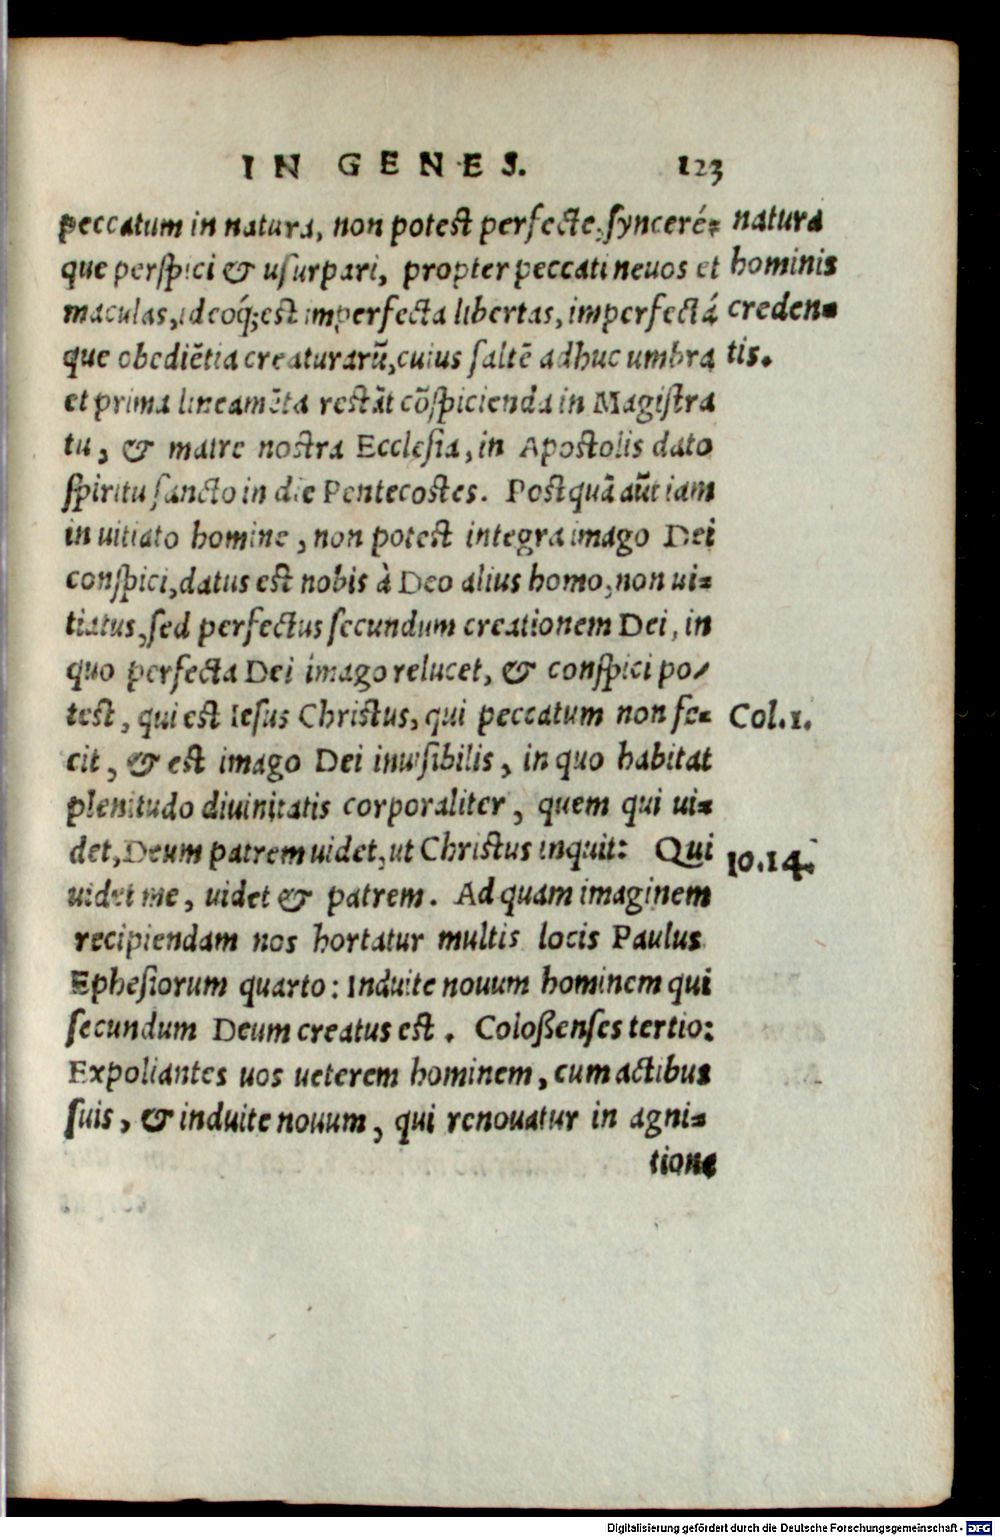 IN GENES. 123
peccatum in natura, non potest perfecte, synceré=
que perspici & usurpari, propter peccati neuos et
maculas, ideoq́; est imperfecta libertas, imperfectá
que obediẽtia creaturarũ, cuius saltẽ adhuc umbra
et prima lineamẽta restãt cõspicienda in Magistra
tu, & matre nostra Ecclesia, in Apostolis dato
spiritu sancto in die Pentecostes. Postquã aũt iam
in uitiato homine, non potest integra imago Dei
conspici, datus est nobis à Deo alius homo, non ui=
tiatus, sed perfectus secundum creationem Dei, in
quo perfecta Dei imago relucet, & conspici po/
test, qui est Iesus Christus, qui peccatum non fe=
cit, & est imago Dei inuisibilis, in quo habitat
plenitudo diuinitatis corporaliter, quem qui ui=
det, Deum patrem uidet, ut Christus inquit: Qui
uidet me, uidet & patrem. Ad quam imaginem
recipiendam nos hortatur multis locis Paulus
Ephesiorum quarto: Induite nouum hominem qui
secundum Deum creatus est. Coloßenses tertio:
Expoliantes uos ueterem hominem, cum actibus
suis, & induite nouum, qui renouatur in agni=
tione
natura
hominis
creden=
tis.
Col.1.
Io.14.
Digitalisierung gefördert durch die Deutsche Forschungsgemeinschaft - DFG